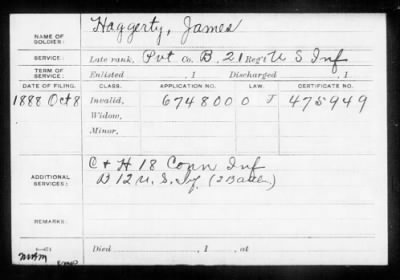 NAME OF SOLDIER: Haggerty, James
SERVICE: Late rank, Pvt Co. B, 21 Reg't U S Inf
TERM OF SERVICE: Enlisted , 1 Discharged , 1
DATE OF FILING. CLASS. APPLICATION NO. LAW. CERTIFICATE NO.
1888 Oct 8 Invalid, 674800 O J 475949
Widow,
Minor,
ADDITIONAL SERVICES: C & H 18 Conn Inf
D 12 U. S. Inf. (2 Batt.)
REMARKS:
Died , 1 , at